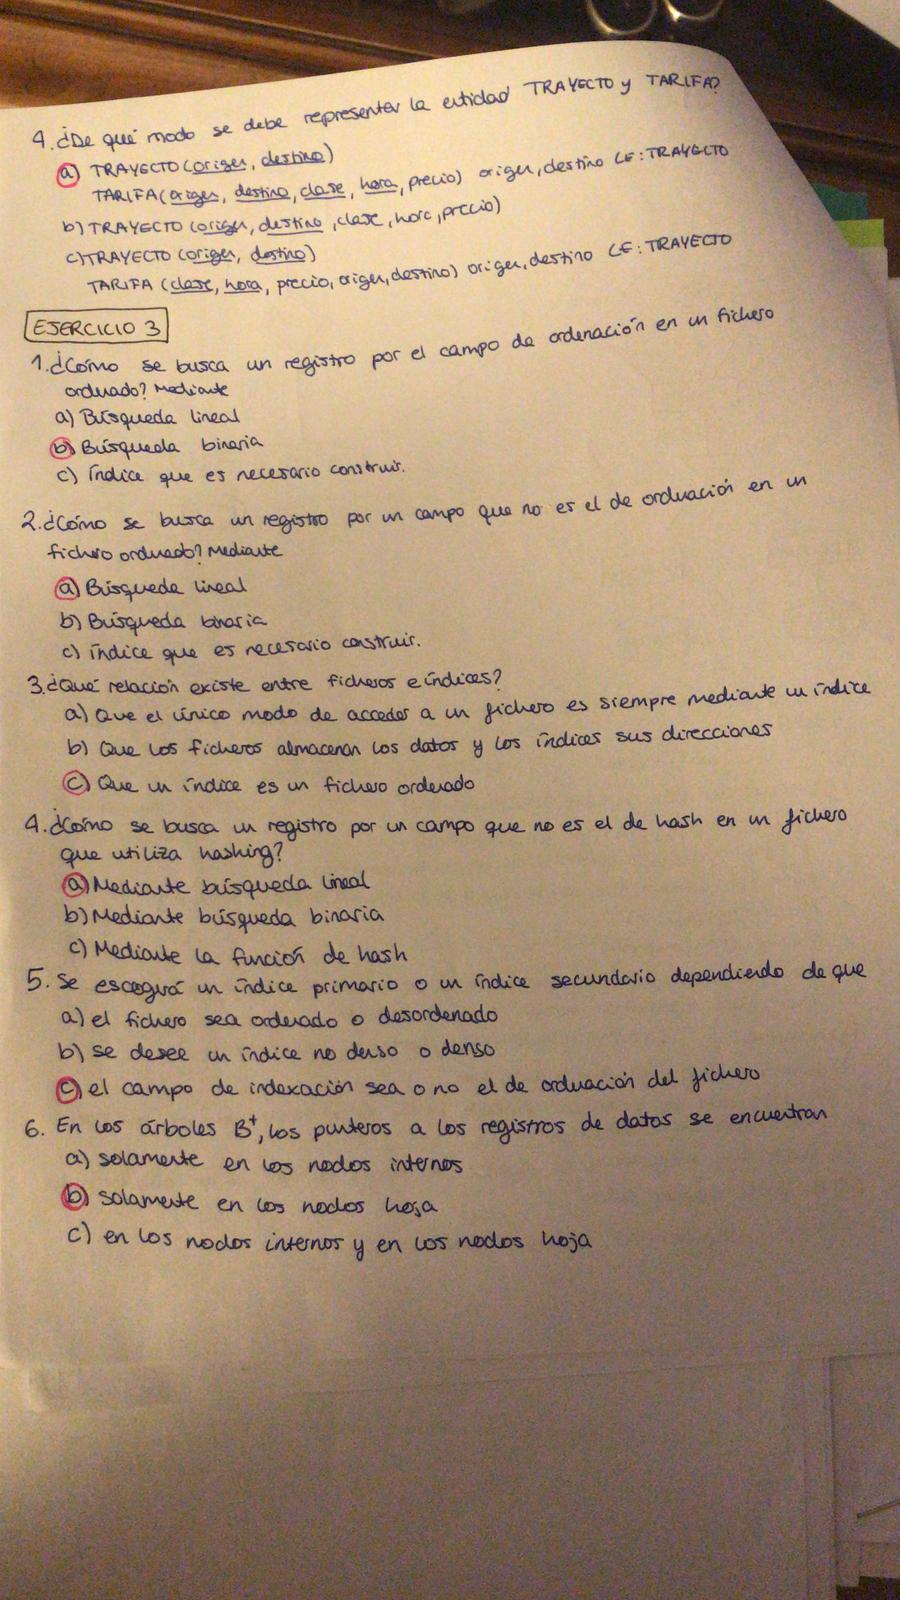 4. ¿De qué modo se debe representar la entidad TRAYECTO y TARIFA?
a) TRAYECTO (origen, destino)
TARIFA (origen, destino, clase, hora, precio) origen, destino CE: TRAYECTO
b) TRAYECTO (origen, destino, clase, hora, precio)
c) TRAYECTO (origen, destino)
TARIFA (clase, hora, precio, origen, destino) origen, destino CE: TRAYECTO
EJERCICIO 3
1. ¿Cómo se busca un registro por el campo de ordenación en un fichero
ordenado? Mediante
a) Búsqueda lineal
b) Búsqueda binaria
c) índice que es necesario construir.
2. ¿Cómo se busca un registro por un campo que no es el de ordenación en un
fichero ordenado? Mediante
a) Búsqueda lineal
b) Búsqueda binaria
c) índice que es necesario construir.
3. ¿Qué relación existe entre ficheros e índices?
a) Que el único modo de acceder a un fichero es siempre mediante un índice
b) Que los ficheros almacenan los datos y los índices sus direcciones
c) Que un índice es un fichero ordenado
4. ¿Cómo se busca un registro por un campo que no es el de hash en un fichero
que utiliza hashing?
a) Mediante búsqueda lineal
b) Mediante búsqueda binaria
c) Mediante la función de hash
5. Se escogerá un índice primario o un índice secundario dependiendo de que
a) el fichero sea ordenado o desordenado
b) se desee un índice no denso o denso
c) el campo de indexación sea o no el de ordenación del fichero
6. En los árboles B+, los punteros a los registros de datos se encuentran
a) solamente en los nodos internos
b) solamente en los nodos hoja
c) en los nodos internos y en los nodos hoja